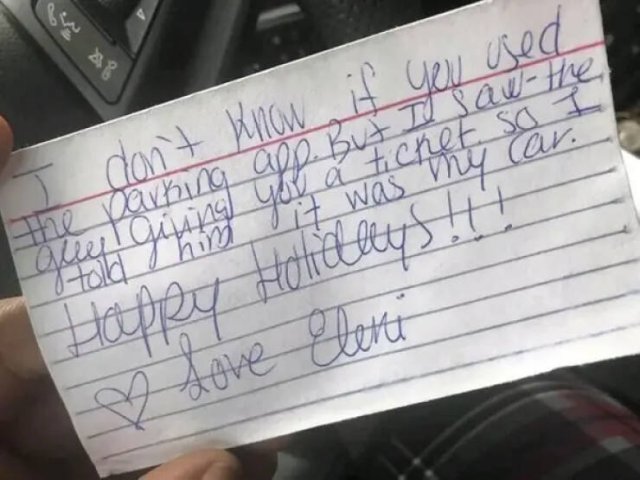 I don't know if you used
the parking app. But I saw the
guy giving you a ticket. so I
told him it was my car.
Happy Holidays!!!
♡ Love Eleni